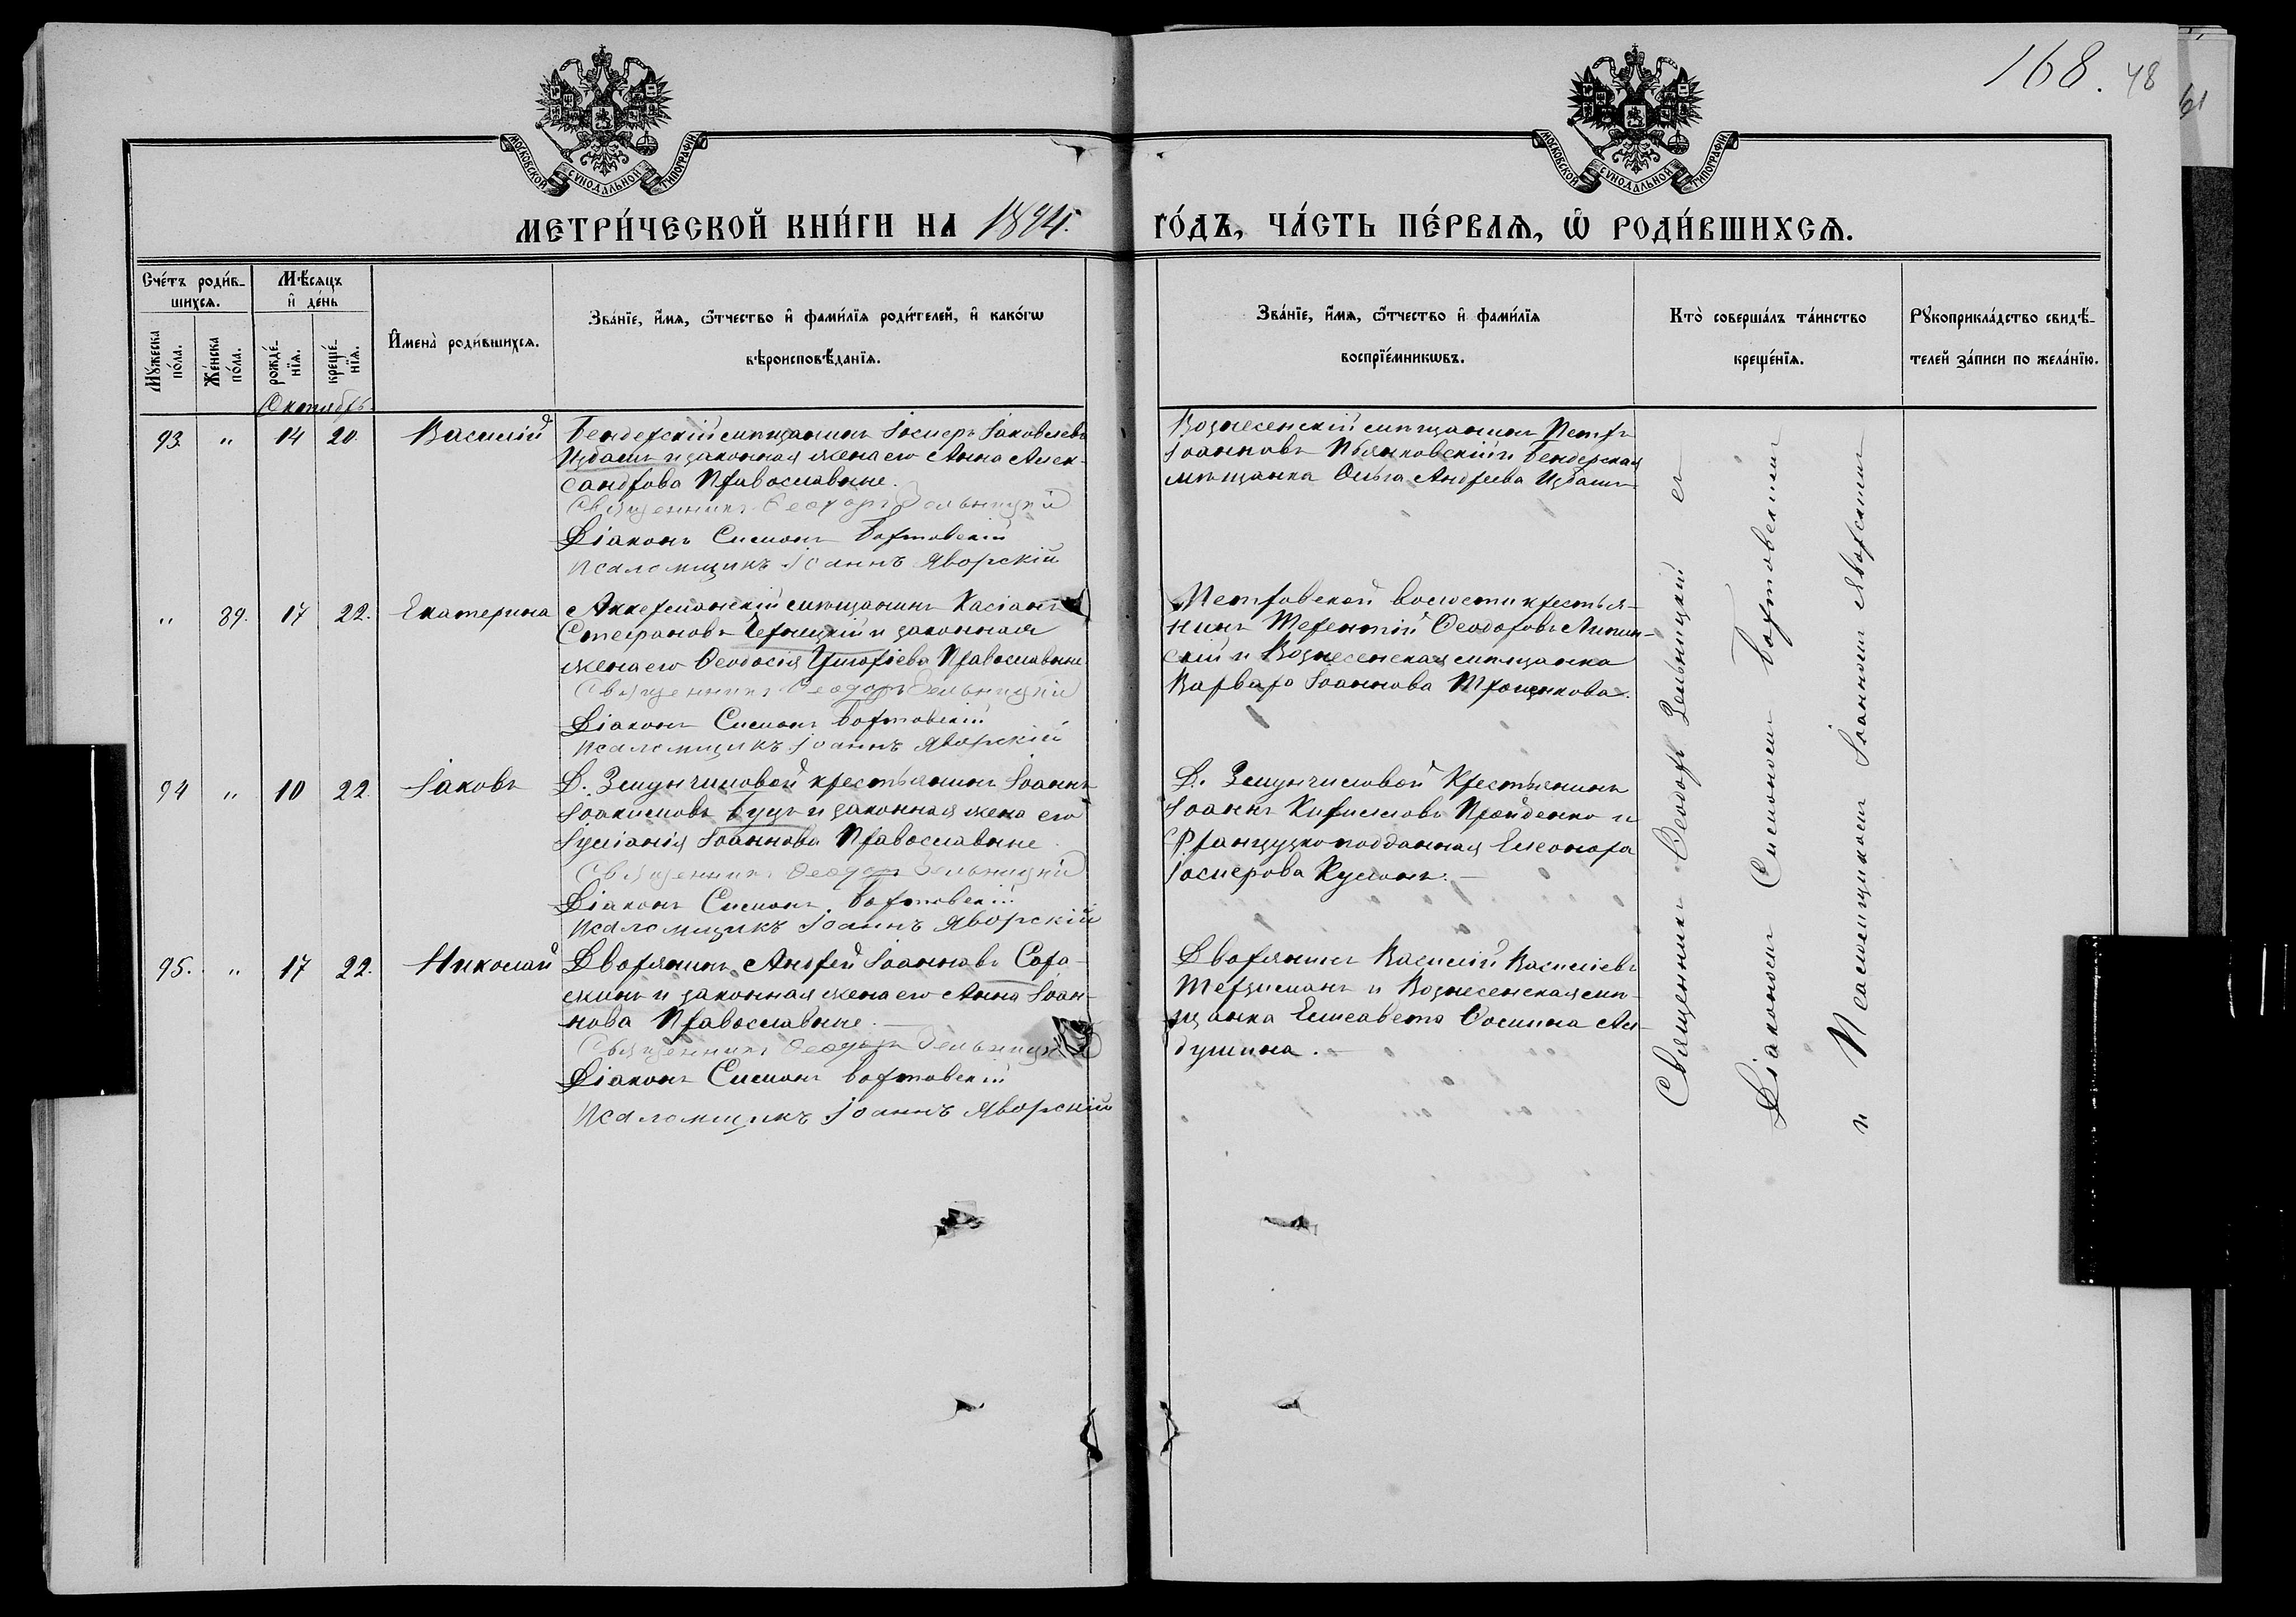 168. 48
МОСКОВСКОЙ СѴНОДАЛЬНОЙ ТИПОГРАФІИ
МОСКОВСКОЙ СѴНОДАЛЬНОЙ ТИПОГРАФІИ
МЕТРИ́ЧЕСКОЙ КНИ́ГИ НА 1894. ГО́ДЪ, ЧА́СТЬ ПЕ́РВАѦ, Ѡ҆ РОДИ́ВШИХСѦ.
Сче́тъ роди́в-
шихсѧ.
Мꙋ́жеска по́ла.
Же́нска по́ла.
Мѣ́сѧцъ
и҆ де́нь
рожде́-нїѧ.
креще́-нїѧ.
И҆мена̀ роди́вшихсѧ.
Зва́нїе, и҆́мѧ, ѻ҆́тчество и҆ фами́лїѧ роди́телей, и҆ како́гѡ
вѣроисповѣ́данїѧ.
Зва́нїе, и҆́мѧ, ѻ҆́тчество и҆ фами́лїѧ
воспрїе́мникѡвъ.
Кто̀ соверша́лъ та́инство
креще́нїѧ.
Рꙋкоприкла́дство свидѣ́-
телей за́писи по жела́нїю.
Октябрь
93. " 14 20. Василій
Бендерскій мѣщанинъ Іосифъ Іаковлевъ
Избашъ и законная жена его Анна Алек-
сандрова Православные.
Священникъ Ѳеодоръ Зельницкій
Діаконъ Симонъ Бортовскій
Псаломщикъ Іоаннъ Яворскій
Вознесенскій мѣщанинъ Петръ
Іоанновъ Пьянковскій и Бендерская
мѣщанка Ольга Андреева Избашъ
" 89. 17 22. Екатерина
Аккерманскій мѣщанинъ Касіанъ
Стефановъ Черницкій и законная
жена его Ѳеодосія Григоріева Православные
Священникъ Ѳеодоръ Зельницкій
Діаконъ Симонъ Бортовскій
Псаломщикъ Іоаннъ Яворскій
Петровской волости крестья-
нинъ Терентій Ѳеодоровъ Липин-
скій и Вознесенская мѣщанка
Варвара Іоаннова Трощенкова.
94 " 10 22. Іаковъ
Д. крестьянинъ Іоаннъ
Іоакимовъ Буцъ и законная жена его
Іуліанія Іоаннова Православные
Священникъ Ѳеодоръ Зельницкій
Діаконъ Симонъ Бортовскій
Псаломщикъ Іоаннъ Яворскій
Д. Крестьянинъ
Іоаннъ Кирилловъ и
Французкоподданная Елеонора
Іосифова
95. " 17 22. Николай
Дворянинъ Андрей Іоанновъ Соро-
кинъ и законная жена его Анна Іоан-
нова Православные.
Священникъ Ѳеодоръ Зельницкій
Діаконъ Симонъ Бортовскій
Псаломщикъ Іоаннъ Яворскій
Дворянинъ Василій Васильевъ
Терциманъ и Вознесенская мѣ-
щанка Елисавета Фомина Ал-
душина.
Священникъ Ѳеодоръ Зельницкій съ
Діакономъ Симономъ Бортовскимъ
и Псаломщикомъ Іоанномъ Яворскимъ